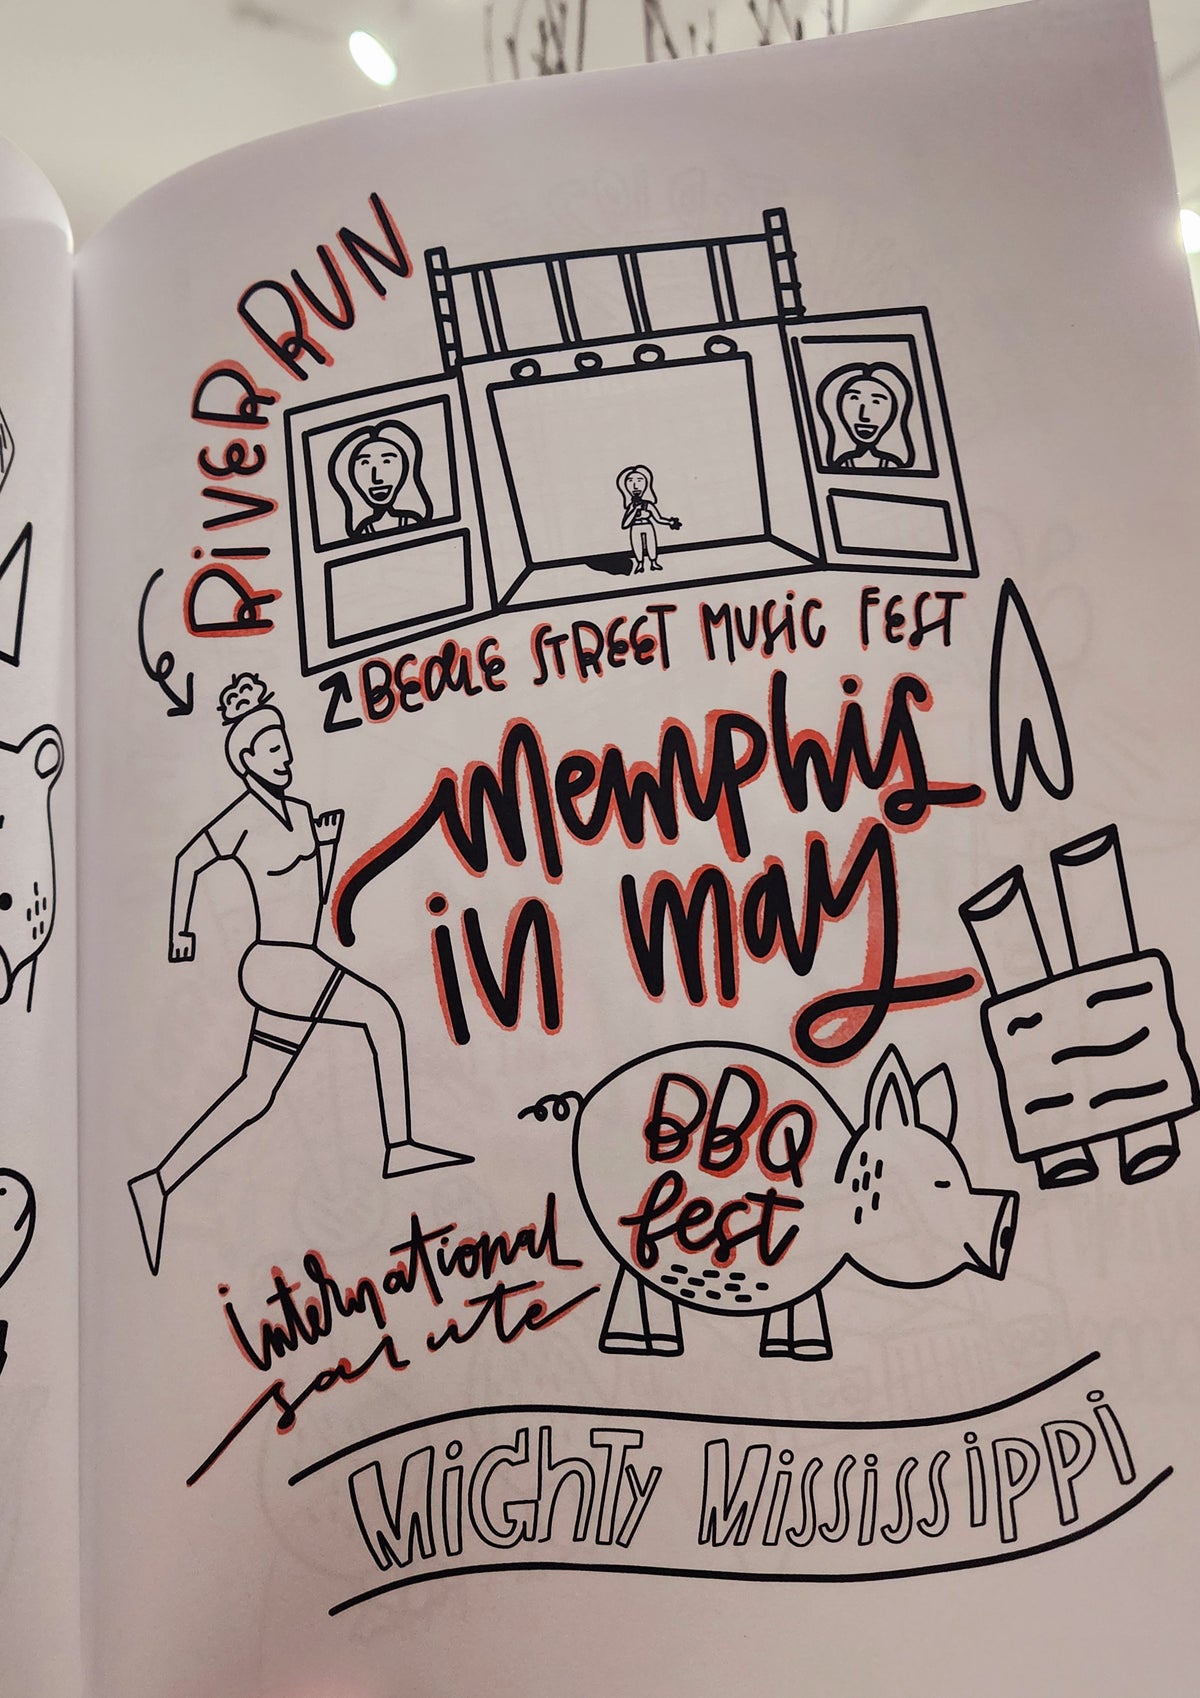 RiVER RUN
BEALE STREET MUSIC FEST
Memphis
in may
BBQ
fest
international
salute
MiGhTy MississiPPi